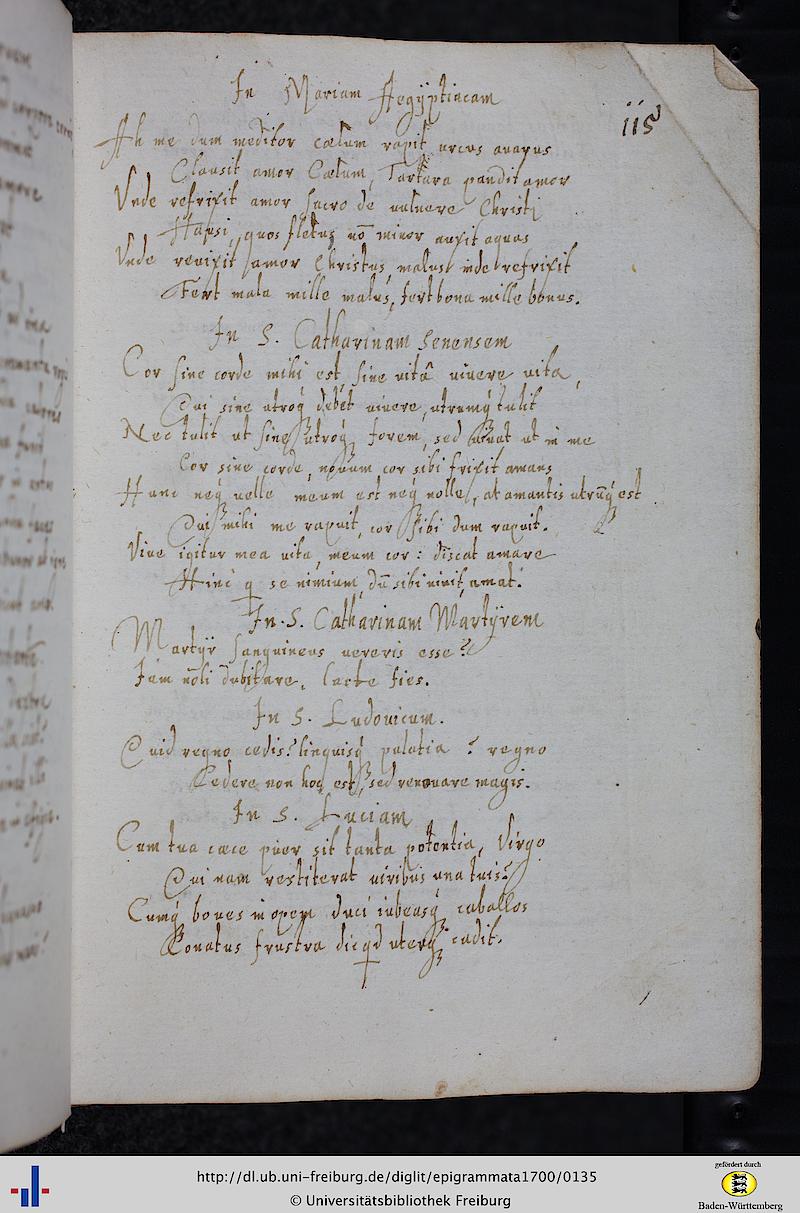 115
In Mariam Aegÿptiacam
Ah me dum meditor cœlum rapit arcus auarus
Clausit amor Cœlum, Tartara pandit amor
Vnde refrixit amor sacro de uulnere Christi
Hausi, quos fletus nō minor auxit aquas
Vnde reuixit amor Christus, malus inde refrixit
Fert mala mille malus, fert bona mille bonus.
In S. Catharinam senensem
Cor sine corde mihi est, sine uitâ uiuere uita,
Cui sine utroq debet uiuere, utrumq tulit
Nec tulit ut sine utroq forem, sed ut in me
Cor sine corde, nouum cor sibi frixit amans
Hunc neq uelle meum est neq nolle, at amantis utrūq est
Cui mihi me rapuit, cor sibi dum rapuit.
Viue igitur mea uita, meum cor: discat amare
Hinc q se nimium, dū sibi uiuit, amat.
In. S. Catharinam Martÿrem
Martÿr sanguineus uereris esse?
Iam nōli dubitare, lacte fies.
In S. Ludouicum.
Quid regno cedis? linquisq palatia? regno
Cedere non hoc est, sed renouare magis.
In S. Luciam
Cum tua cæce puer sit tanta potentia, Virgo
Cui nam restiterat uiribus una tuis?
Cumq boues in opem duci iubeasq caballos
Conatus frustra dic qd uterq cadit.
http://dl.ub.uni-freiburg.de/diglit/epigrammata1700/0135
© Universitätsbibliothek Freiburg
gefördert durch
Baden-Württemberg